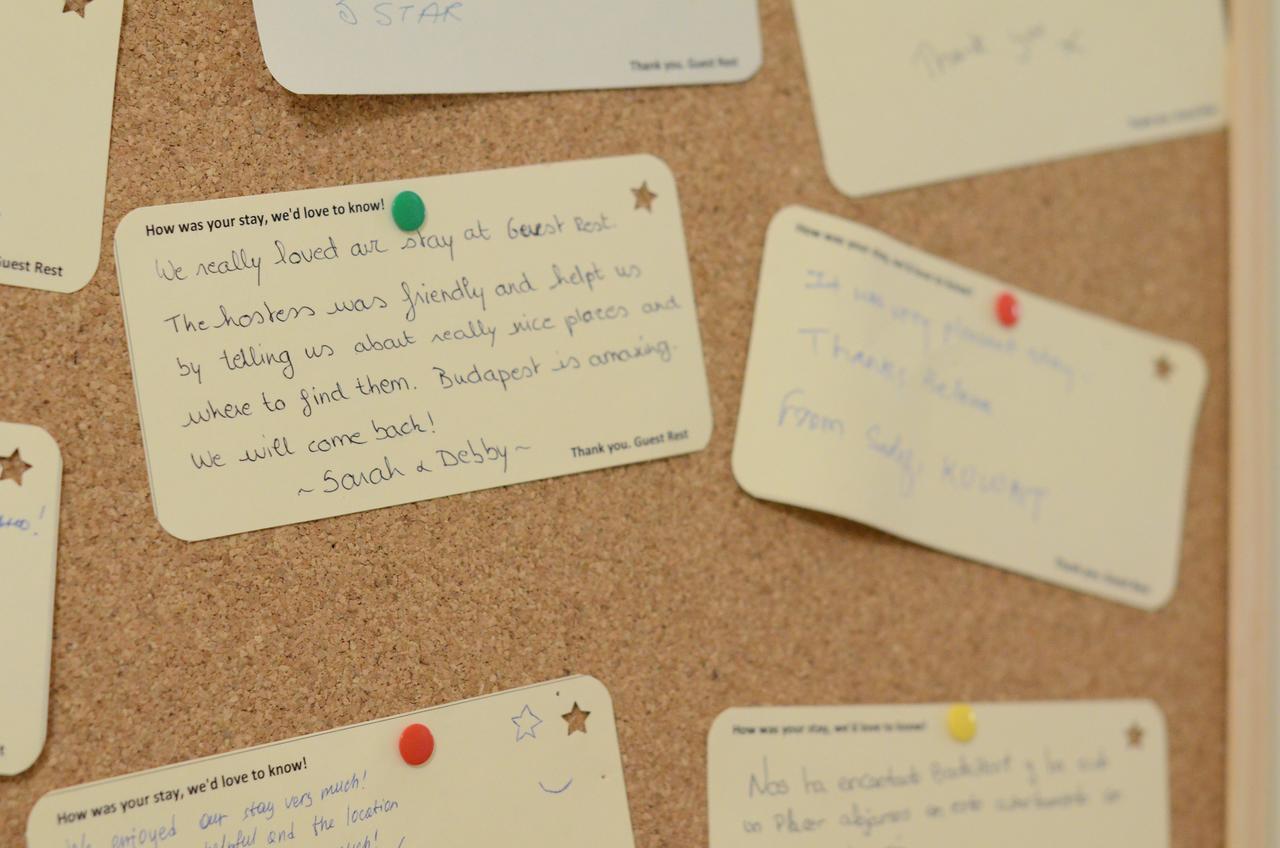 5 STAR
Thank you. Guest Rest
Thank you x
Guest Rest
How was your stay, we'd love to know!
We really loved our stay at Guest Rest.
The hostess was friendly and helpt us
by telling us about really nice places and
where to find them. Budapest is amazing.
We will come back!
~ Sarah & Debby ~
Thank you. Guest Rest
How was your stay, we'd love to know!
It was very pleasant stay.
Thanks
From KUWAIT
Thank you. Guest Rest
How was your stay, we'd love to know!
We enjoyed our stay very much!
helpful and the location
How was your stay, we'd love to know!
Nos ha encantado y ha sido
un placer alojarnos en este